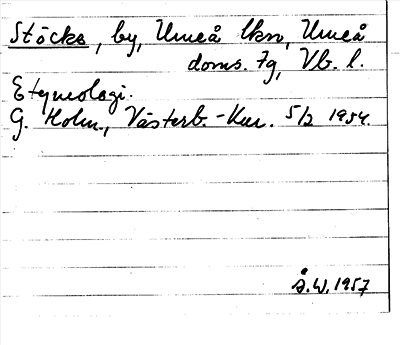 Stöcke, by, Umeå lkn, Umeå
doms. 7g, Vb. l.
Etymologi.
G. Holm, Västerb.-Kur. 5/2 1954.
Å.W. 1957